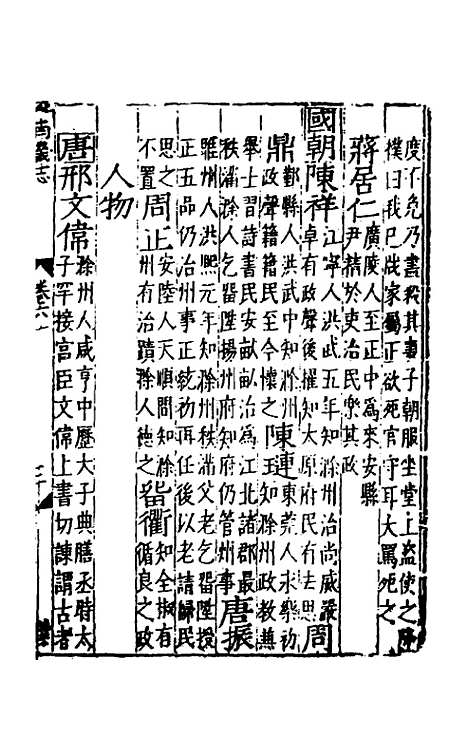 度不免乃盡殺其妻子朝服坐堂上盜使之降
樸曰我已破家屬正欲死官守耳大罵死之
蔣居仁
廣陵人至正中為來安縣
尹於吏治民樂其政
國朝陳祥
江寧人洪武五年知滁州治尚威嚴
卓有政聲後擢知太原府民有去思
周
鼎
鄞縣人洪武中知滁州
政聲籍籍民至今懷之
陳璉
東莞人永樂初
知滁州政教兼
舉士習詩書民安畎畝治為江北諸郡最
秩滿滁人乞留陞揚州府知府仍管州事
唐振
睢州人洪熙元年知滁州秩滿父老乞留陞授
正五品仍治州事正統初再任後以老請歸民
思之
不置
周正
安陸人天順間知滁
州有治蹟滁人德之
昝衢
知全椒有
循良之政
人物
唐邢文偉
滁州人咸亨中歷大子典膳丞時太
子罕接宮臣文偉上書切諫謂古者
南畿志